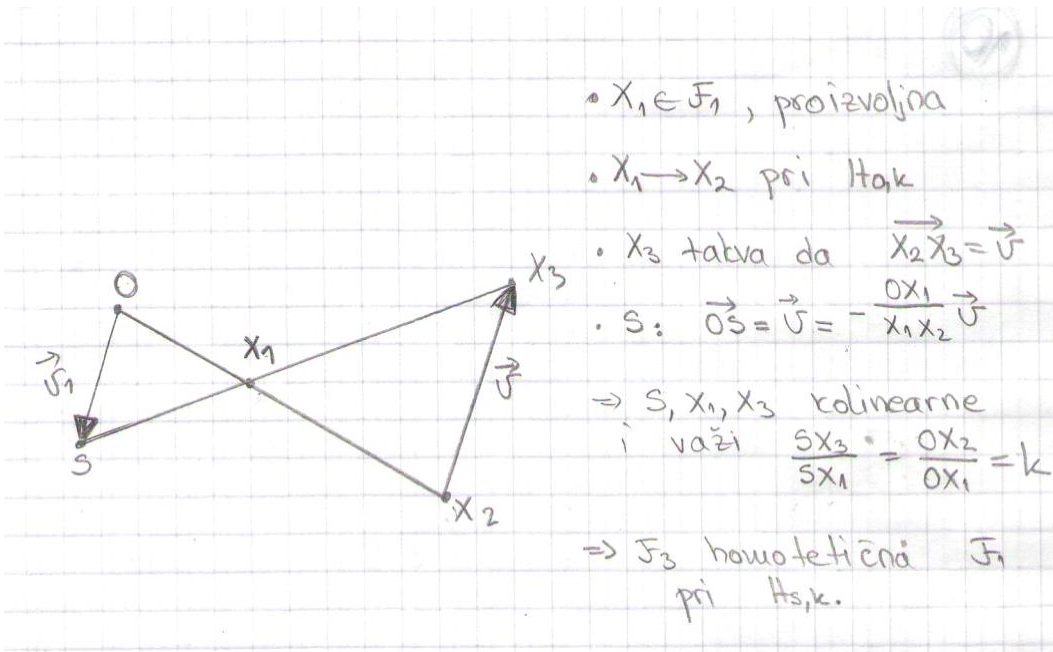 • X₁ ∈ F₁, proizvoljna
• X₁ → X₂ pri H₀,k
• X₃ takva da \overrightarrow{X₂X₃} = \vec{v}
• S: \overrightarrow{OS} = \vec{v} = - \frac{OX₁}{X₁X₂} \vec{v}
⇒ S, X₁, X₃ kolinearne
i važi \frac{SX₃}{SX₁} = \frac{OX₂}{OX₁} = k
⇒ F₃ homotetična F₁
pri Hs,k.
O
X₃
X₁
\vec{v}₁
\vec{v}
S
X₂